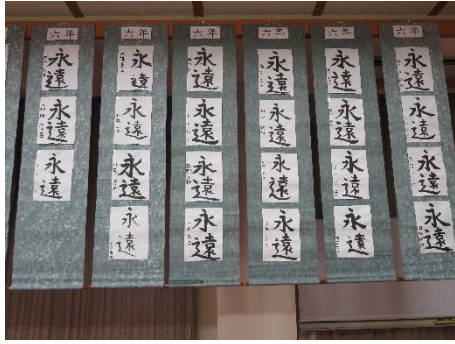 六年
永遠
永遠
永遠
六年
永遠
永遠
永遠
永遠
六年
永遠
永遠
永遠
永遠
六年
永遠
永遠
永遠
永遠
六年
永遠
永遠
永遠
永遠
六年
永遠
永遠
永遠
永遠